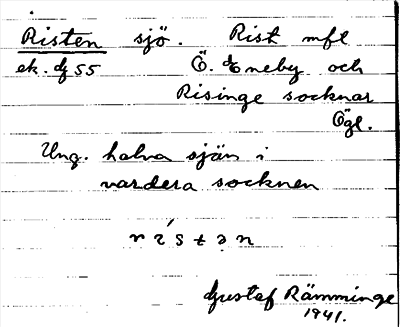 Risten sjö. Rist mfl
ek. bl 55 Ö. Eneby och
Risinge socknar
Ögl.
Ung. halva sjön i
vardera socknen
rı́stən
Gustaf Rämminge
1941.